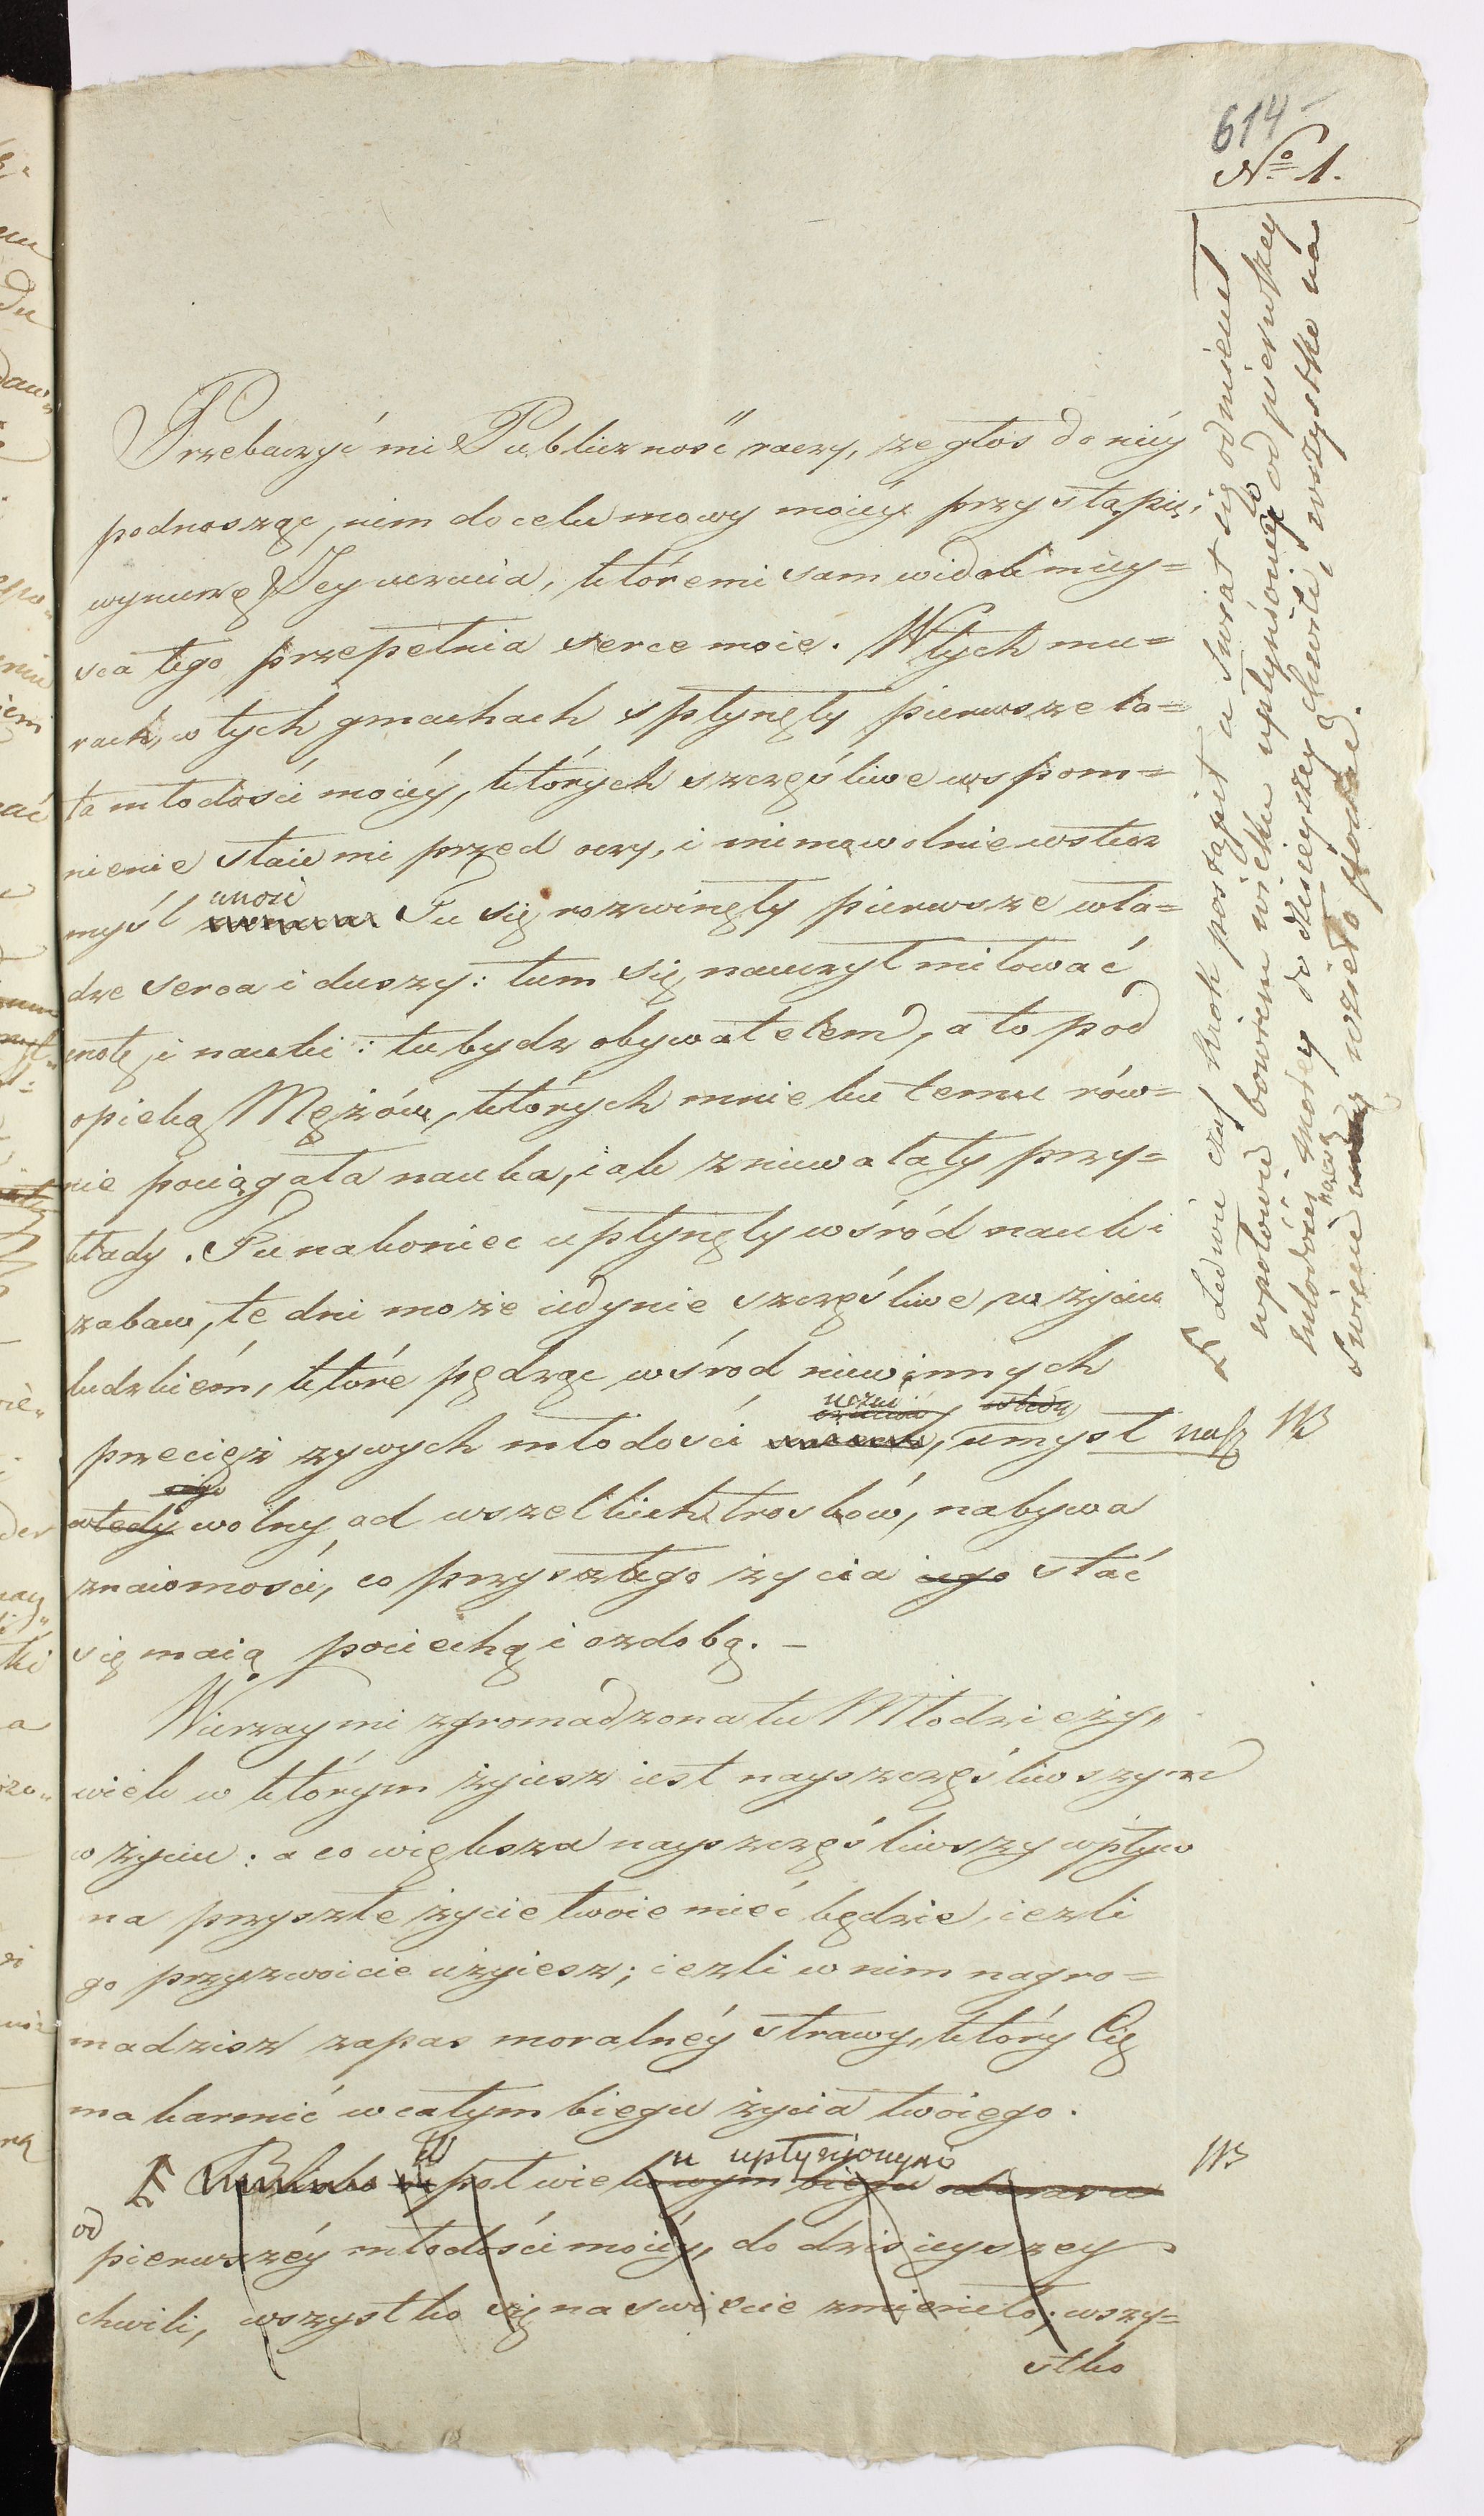 614
No 1.
Przebaczyć mi Publiczność raczy, że głos do niéy
podnosząc, nim do celu mowy moiéy przystąpię,
wynurzę Jey uczucia, któremi sam widok miey=
sca tego przepełnia serce moie. W tych mu=
rach, w tych gmachach spłynęły pierwsze la=
ta młodości moiéy, których szczęśliwe wspom=
nienie staie mi przed oczy, i mimowolnie wstecz
myśl unosi Tu się rozwinęły pierwsze wła=
dze serca i duszy: tum się nauczył miłować
cnotę i nauki: tu bydz obywatelem, a to pod
opieką Mężów, których mnie ku temu rów=
nie pociągała nauka, iak zniewalały przy=
kłady. Tu nakoniec upłynęły wśród nauk i
zabaw, te dni może iedynie szczęśliwe w życiu
ludzkiém, które pędząc wśród niewinnych
przecięż żywych młodości uczuć, umysł nasz NB
wtedy wolny od wszelkich trosków, nabywa
znaiomości, co przyszłego życia iego stać
się maią pociechą i ozdobą. –
Wierzay mi zgromadzona tu Młodzieży,
wiek w którym żyiesz iest nayszczęśliwszym
w życiu: a co większa nayszczęśliwszy wpływ
na przyszłe życie twoie mieć będzie, ieżli
go przyzwoicie użyiesz; ieżli w nim nagro=
madzisz zapas moralnéy strawy, który Cię
ma karmić w całym biegu życia twoiego.
W pół wieku upłynionym NB
od pierwszéy młodości moiéy, do dzisieyszey
chwili, wszystko się na świecie zmieniło; wszy=
stko
Ledwie czas krok postąpił a świat się odmienił
w połowie bowiem wieku upłynioney to od pierwszey
młodości moiey do dzisieyszey chwili, wszystko na
świecie naszą wzięło postać.